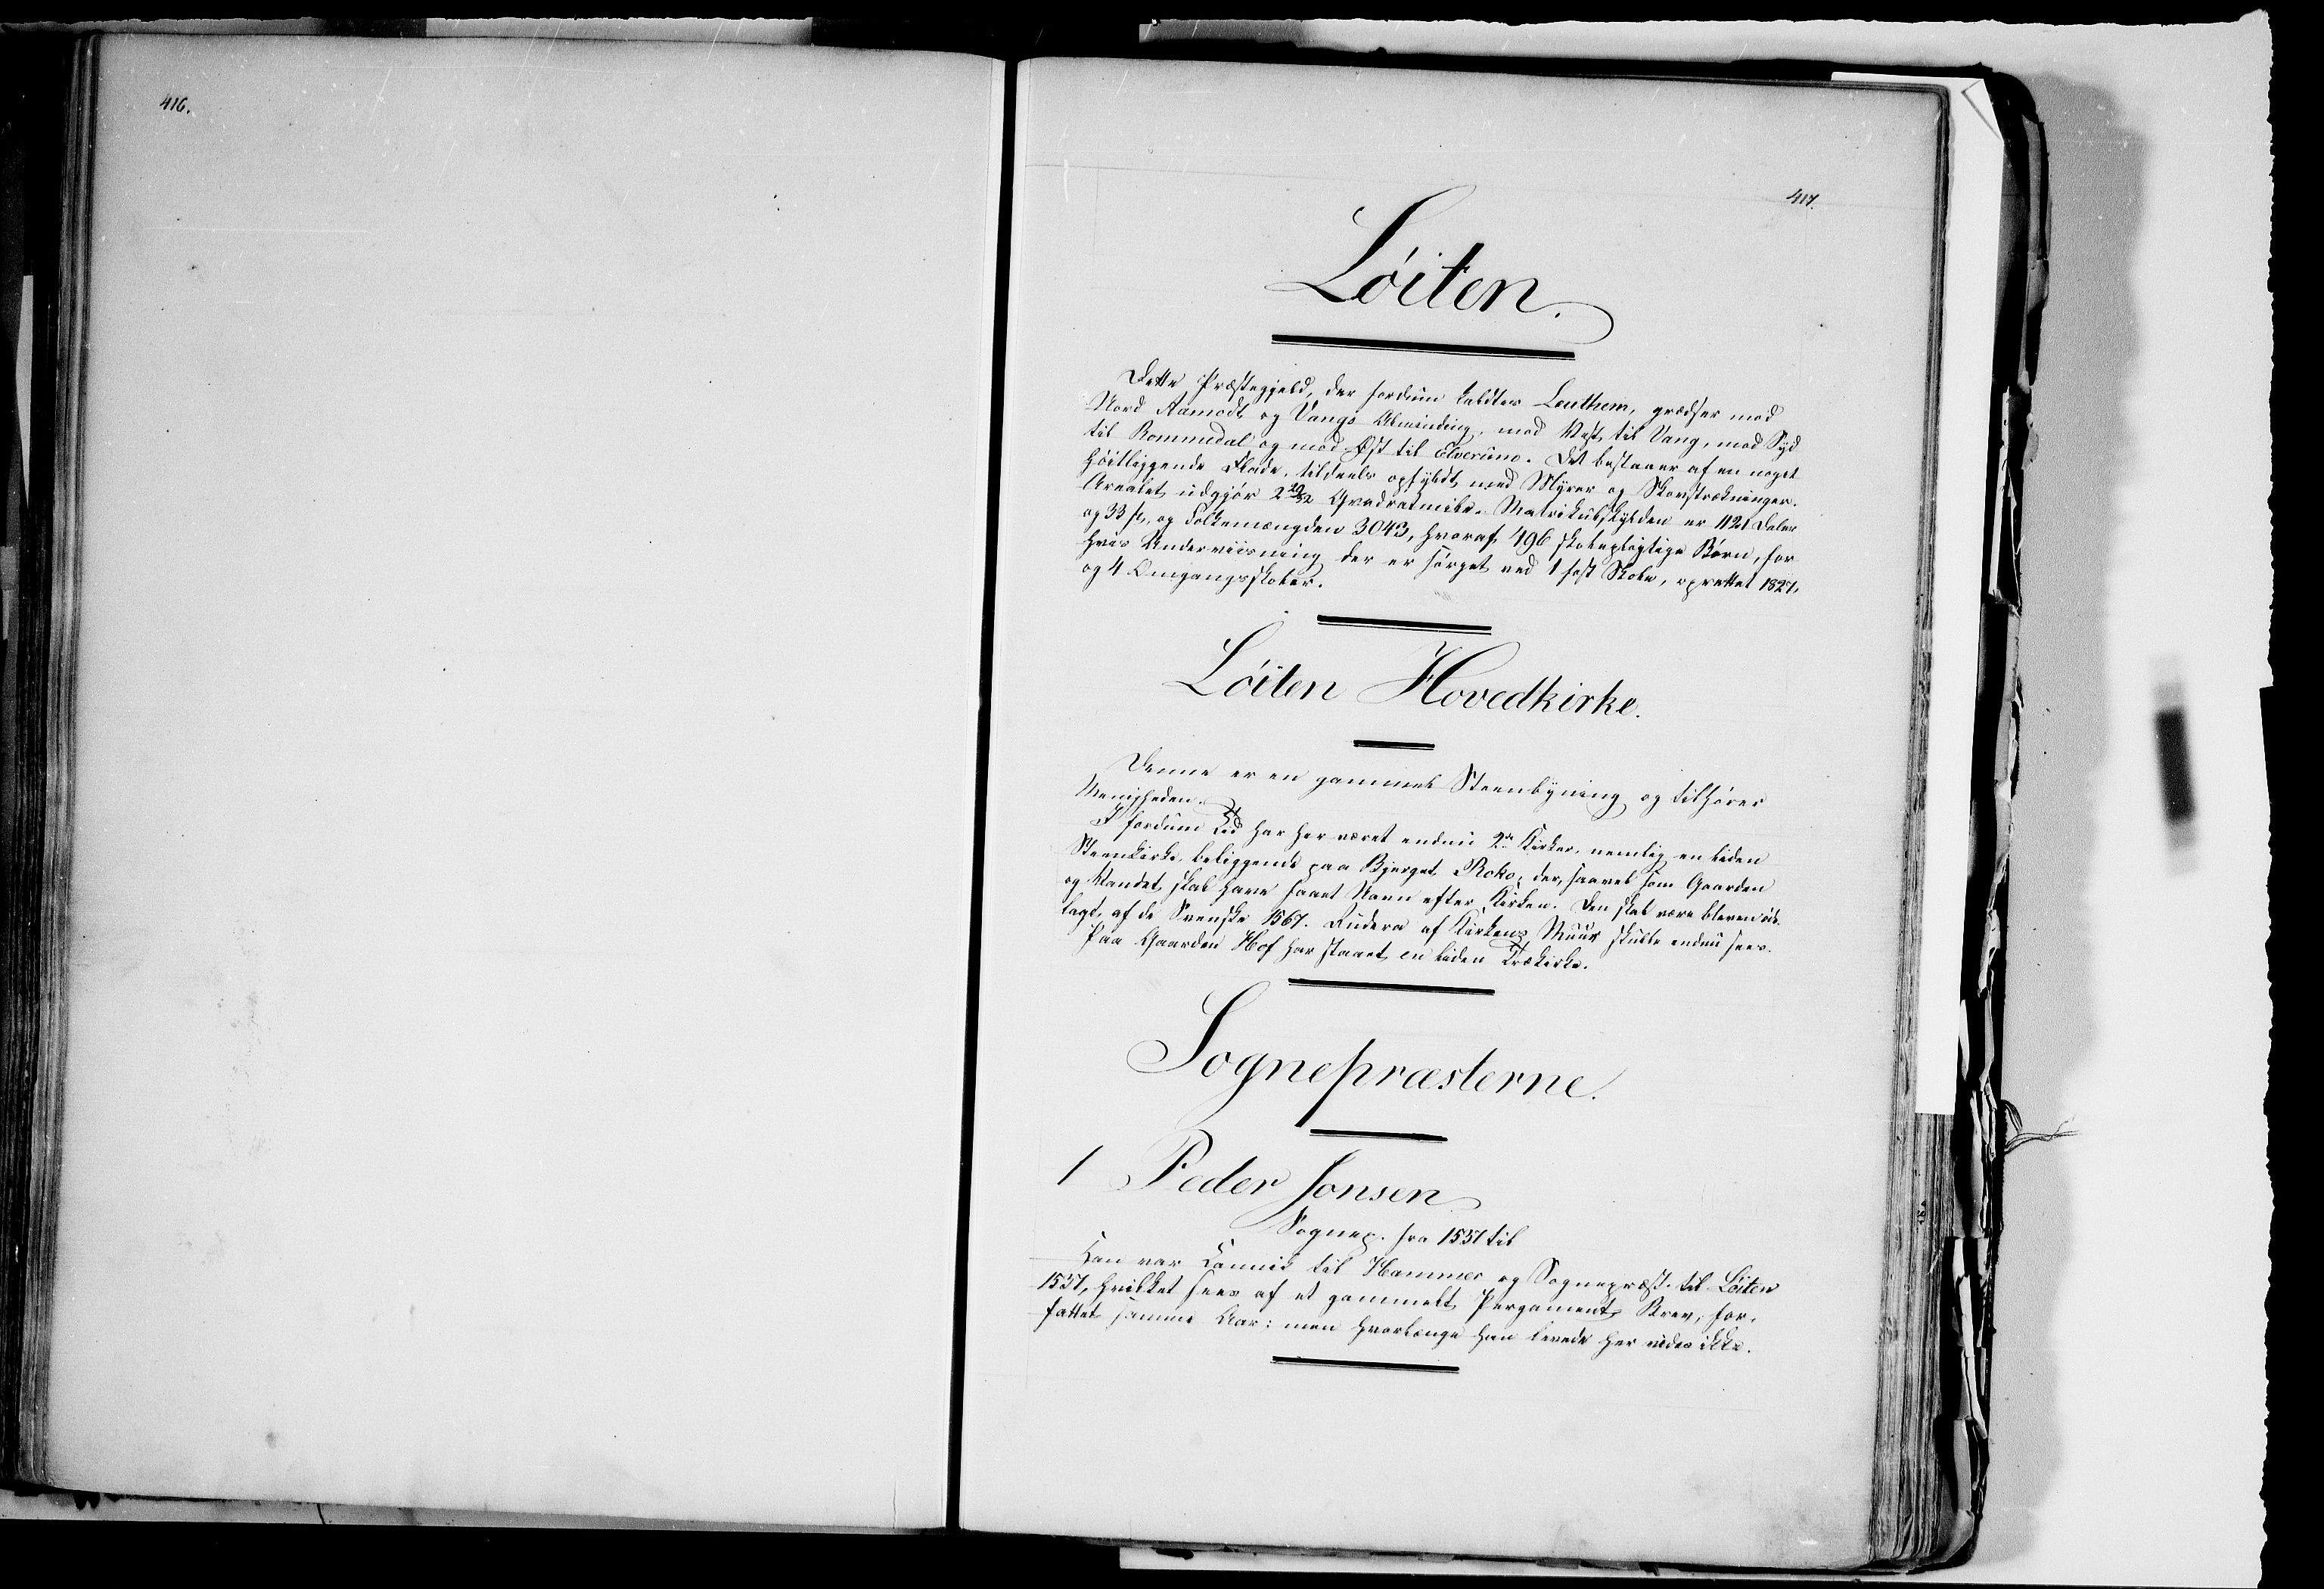 416.
417.
Löiten.
Dette Præstegjeld, der fordum kaldtes Leuthem, grædser mod
Nord Aamodt og Vangs Alminding, mod Vest til Vang, mod Syd
til Rommedal og mod Øst til Elverums. Det bestaaer af en noget
höitliggende Flade, tildeels opfyldt med Myrer og Skovstrækninger.
Arealet udgjör 2 Qvadratmile. Matrikulskylden er 1121 Daler
og 33 ß, og Folkemængden 3043, hvoraf 496 skolepligtige Børn, for
hvis Underviisning der er sörget ved 1 fast Skole, oprettet 1827,
og 4 Omgangsskoler.
Löiten Hovedkirke.
Denne er en gammel Steenbygning og tilhörer
Menigheden.
I fordum Tid har her været endnu 2de Kirker, nemlig en liden
Steenkirke, beliggende paa Bjerget Roko, der, saavel som Gaarden
og Vandet, skal have faaet Navn efter Kirken. Den skal være bleven öde-
lagt af de Svenske 1567. Rudera af Kirkens Muur skulle endnu sees.
Paa Gaarden Hof har staaet en liden Trækirke.
Sognepræsterne.
1 Peder Jonsen
Sognep. fra 1537 til
Han var Kannik til Hammer og Sognepræst til Löiten
1537, hvilket sees af et gammelt Pergaments Brev, for-
fattet samme Aar: men hvorlænge han levede her vides ikke.